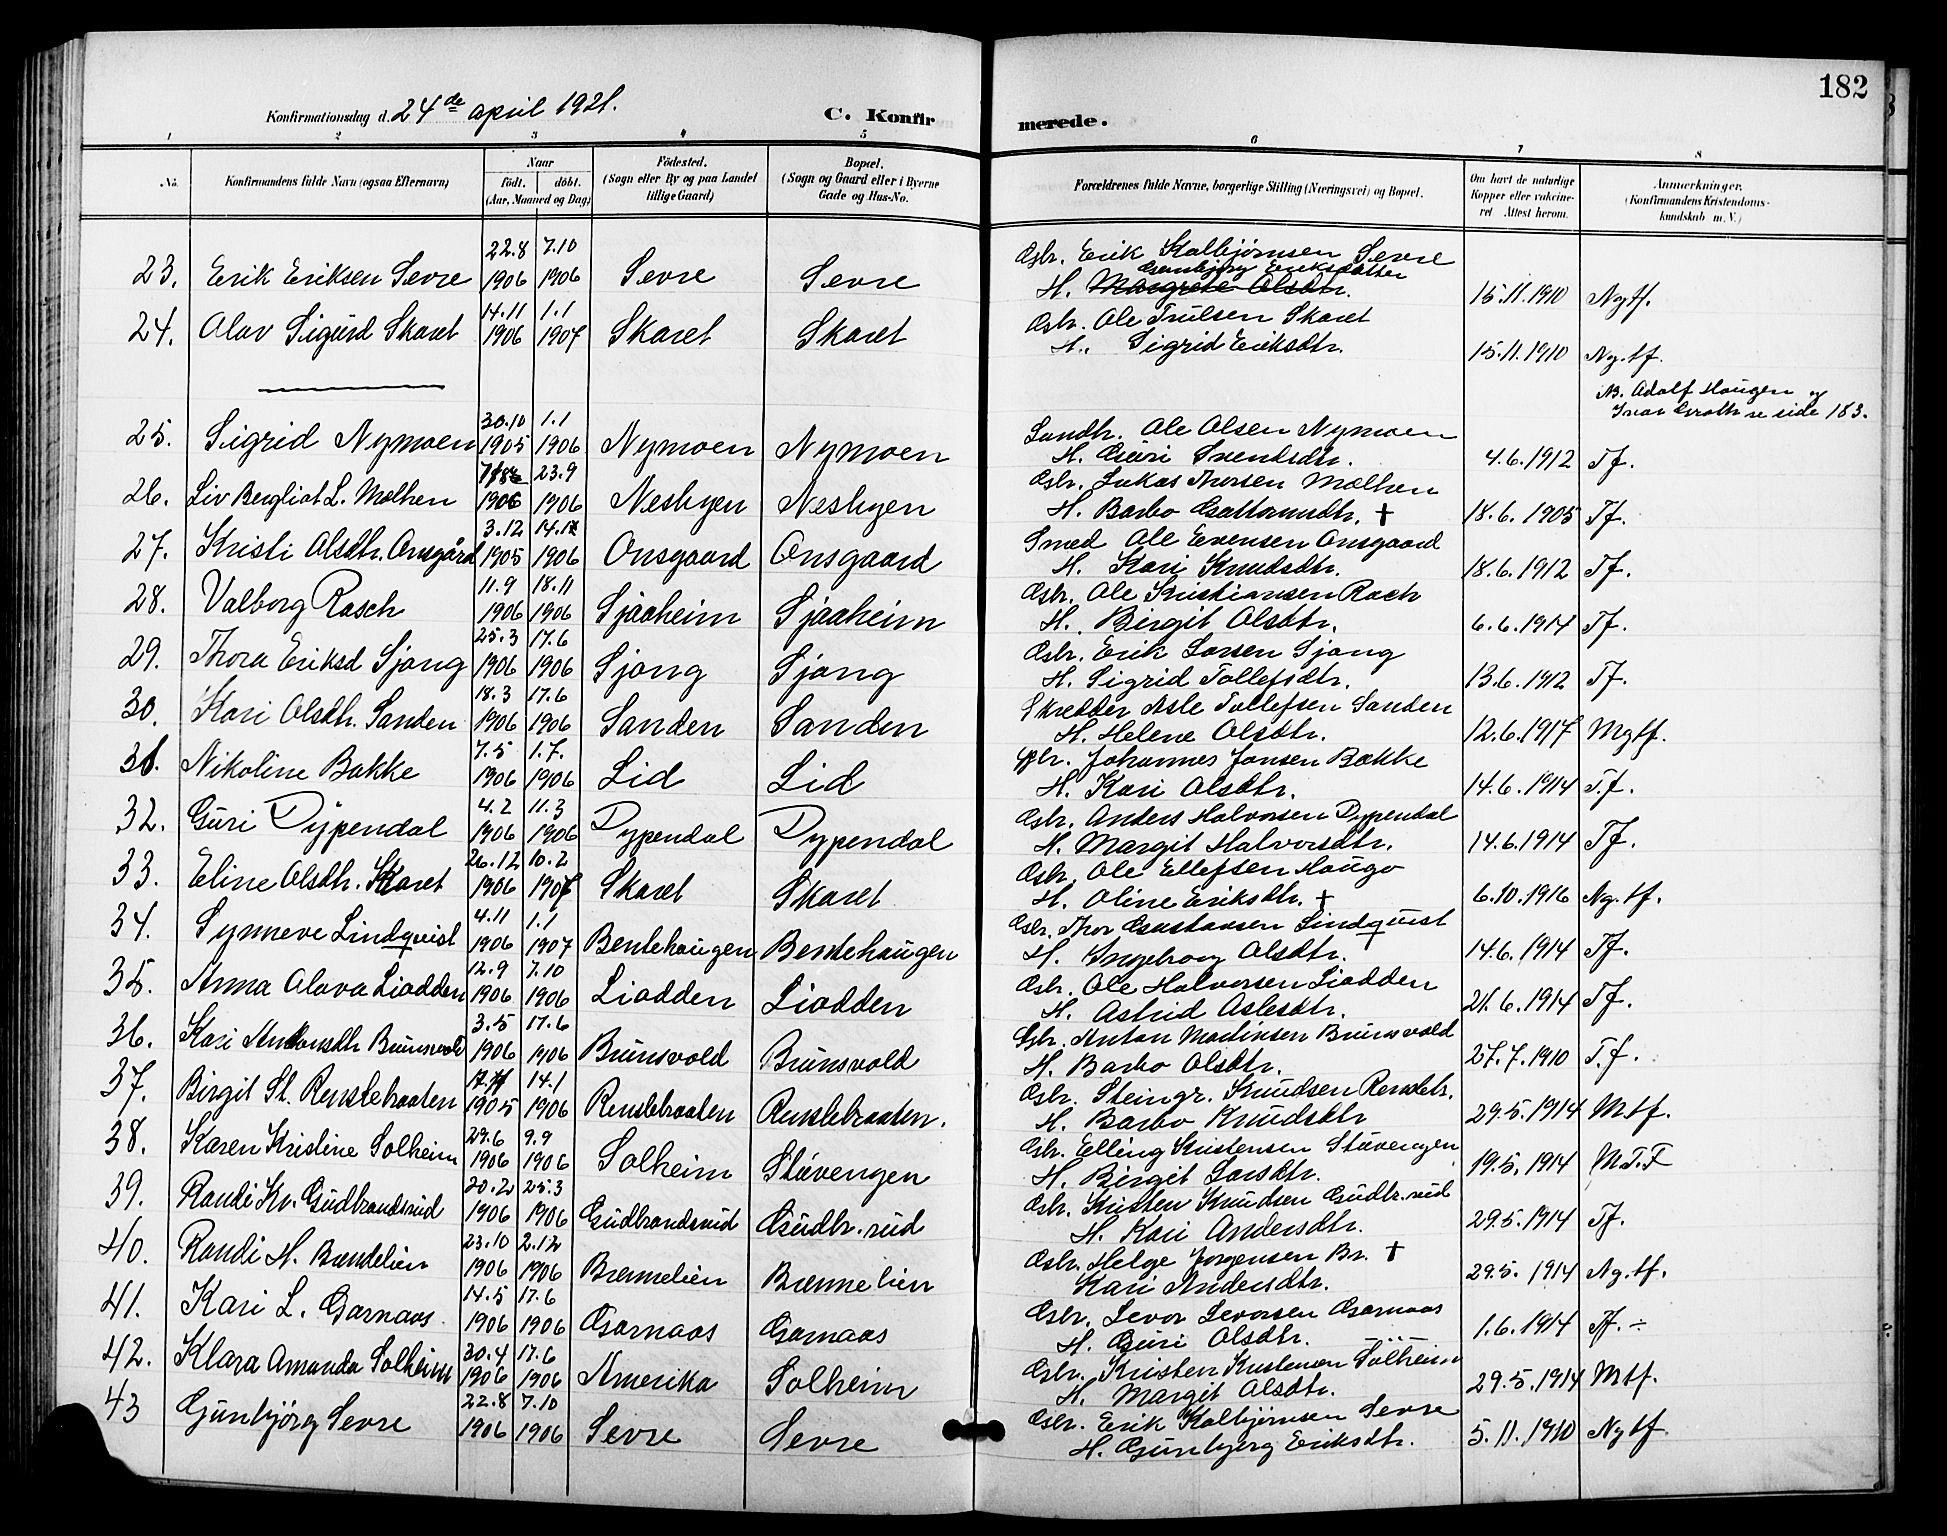 182
Konfirmationsdag d. 24de april 1921.
C. Konfirmerede.
1 2 3 4 5 6 7 8
No. Konfirmandens fulde Navn (ogsaa Efternavn) Naar født. døbt. (Aar, Maaned og Dag) Fødested. (Sogn eller By og paa Landet tillige Gaard) Bopæl. (Sogn og Gaard eller i Byerne Gade og Hus-No. Forældrenes fulde Navne, borgerlige Stilling (Næringsvei) og Bopæl. Om havt de naturlige Kopper eller vakcineret. Attest herom. Anmerkninger. (Konfirmandens Kristendomskundskab m. V.)
22.8 7.10 Gbr. Erik Kolbjørnsen Sevre
23. Erik Eriksen Sevre 1906 1906 Sevre Sevre H. Margrete Olsdtr. Gunbjørg Eriksdatter 15.11.1910 Ngtf.
14.11 1.1 Gbr. Ole Trulsen Skaret
24. Olav Sigurd Skaret 1906 1907 Skaret Skaret H. Sigrid Eriksdtr. 15.11.1910 Ng.tf.
NB. Adolf Haugen og
Ivar Groth se side 183.
30.10 1.1 Landh. Ole Olsen Nymoen
25. Sigrid Nymoen 1905 1906 Nymoen Nymoen H. Guri Svendsdtr. 4.6.1912 Tf.
23.9 Gbr. Lukas Thorsen Mælhen
26. Liv Bergliot L. Mælhen 1906 1906 Nesbyen Nesbyen H. Barbo Guttormsdtr. † 18.6.1905 Tf.
3.12 Smed Ole Evensen Onsgaard
27. Kristi Olsdtr. Onsgård 1905 1906 Onsgaard Onsgaard H. Kari Knudsdtr. 18.6.1912 Tf.
11.9 18.11 Gbr. Ole Kristiansen Rach
28. Valborg Rasch 1906 1906 Sjaaheim Sjaaheim H. Birgit Olsdtr. 6.6.1914 Tf.
25.3 17.6 Gbr. Erik Larsen Sjong
29. Thora Eriksd Sjong 1906 1906 Sjong Sjong H. Sigrid Tollefsdtr. 13.6.1912 Tf.
18.3 17.6 Skredder Asle Tollefsen Sanden
30. Kari Olsdtr. Sanden 1906 1906 Sanden Sanden H. Helene Olsdtr. 12.6.1917 Mgtf.
7.5 1.7. Johannes Jonsen Bakke
31. Nikoline Bakke 1906 1906 Lid Lid H. Kari Olsdtr. 14.6.1914 T.f.
4.2 11.3 Gbr. Anders Halvorsen Dypendal
32. Guri Dypendal 1906 1906 Dypendal Dypendal H. Margit Halvorsdtr. 14.6.1914 Tf.
26.12 10.2 Gbr. Ole Ellefsen Haugo
33. Eline Olsdtr. Skaret 1906 1907 Skaret Skaret H. Oline Eriksdtr. † 6.10.1916 Ng.tf.
4.11 1.1 Gbr. Thor Gustavsen Lindquist
34. Synneve Lindquist 1906 1907 Bentehaugen Bentehaugen H. Ingeborg Olsdtr. 14.6.1914 Tf.
12.9 7.10 Gbr. Ole Halvorsen Liodden
35. Anna Olava Liodden 1906 1906 Liodden Liodden H. Astrid Aslesdtr. 21.6.1914 T.f.
3.5 17.6 Gbr. Anton Martinsen Brunsvold
36. Kari Antonsdtr Brunsvold 1906 1906 Brunsvold Brunsvold H. Barbo Olsdtr. 27.7.1910 T.f.
14.1 Gbr. Steingr. Knudsen Renslebr.
37. Birgit St. Renslebraaten 1905 1906 Renslebraaten Renslebraaten. H. Barbo Knudsdtr 29.5.1914 Mtf.
29.6 9.9 Gbr. Elling Kristensen Stavengen
38. Karen Kristine Solheim 1906 1906 Solheim Støvengen H. Birgit Larsdtr. 19.5.1914 M.T.F
20.2 25.3 Gbr. Kristen Knudsen Gudbr.rud
39. Randi Kr. Gudbrandsrud 1906 1906 Gudbrandsrud Gudbr.rud H. Kari Andersdtr. 29.5.1914 Tf.
23.10 2.12 Gbr. Helge Jørgensen Br. †
40. Randi H. Brendelien 1906 1906 Brennelien Brennelien Kari Andersdtr. 29.5.1914 Ng.tf.
14.5 17.6 Gbr. Levor Levorsen Garnaas
41. Kari L. Garnaas. 1906 1906 Garnaas Garnaas H. Guri Olsdtr. 1.6.1914 Tf. ÷
30.4 17.6 Gbr. Kristen Kristensen Solheim
42. Klara Amanda Solheim 1906 1906 Amerika Solheim H. Margit Olsdtr. 29.5.1914 Mtf.
22.8 7.10 Gbr. Erik Kolbjørnsen Sevre
43 Gunbjørg Sevre 1906 1906 Sevre Sevre H. Gunbjørg Eriksdtr. 5.11.1910 Ngtf